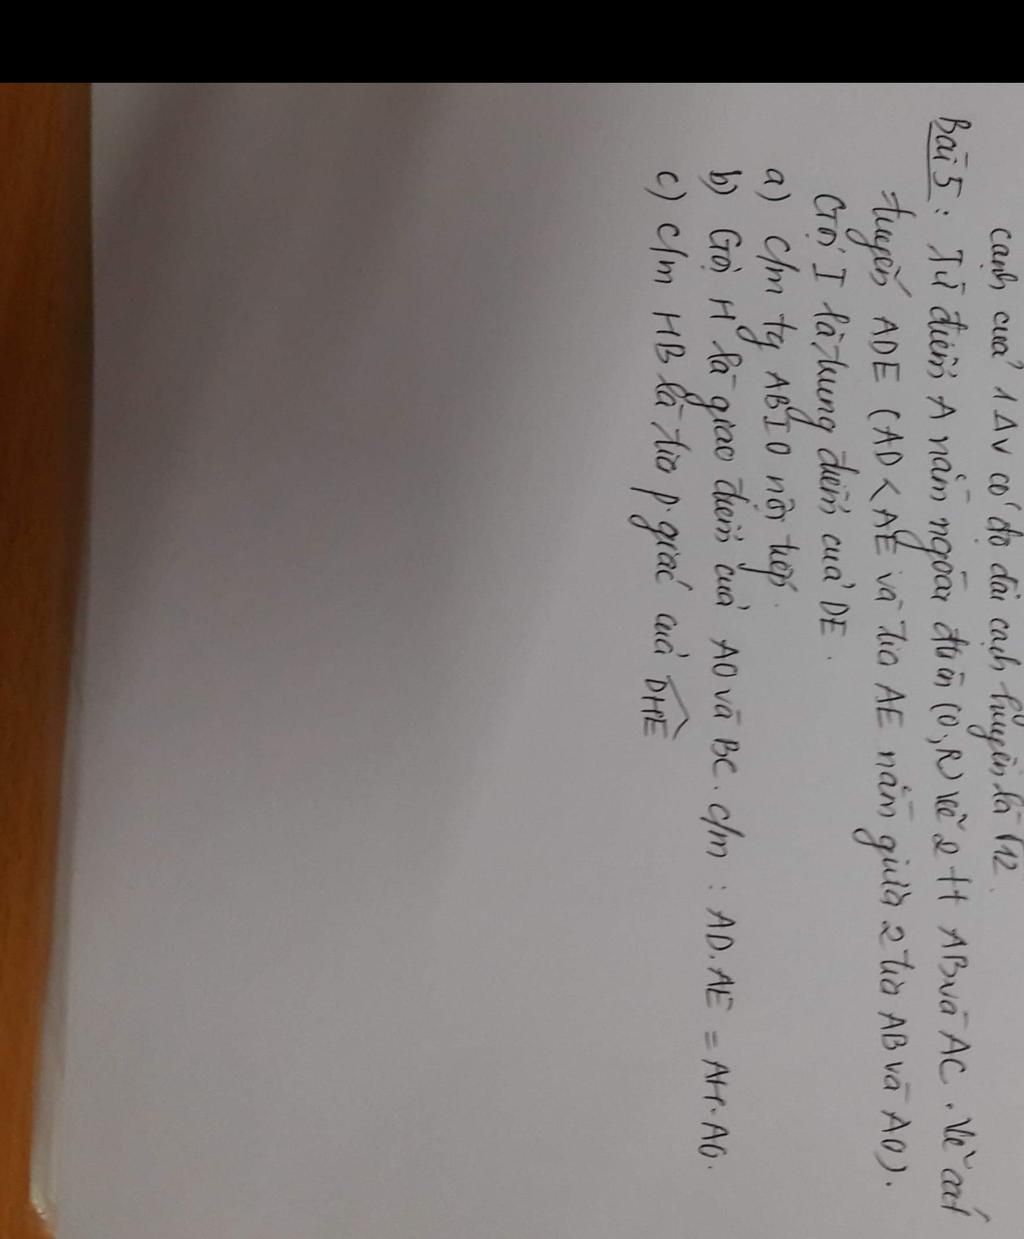 cạnh của 1 Δv có độ dài cạnh huyền là √12.
Bài 5: Từ điểm A nằm ngoài đtròn (O, R) vẽ 2 tt AB và AC. Vẽ cát
tuyến ADE (AD < AE và tia AE nằm giữa 2 tia AB và AO).
Gọi I là trung điểm của DE.
a) c/m tg ABIO nội tiếp.
b) Gọi H là giao điểm của AO và BC. c/m: AD.AE = AH.AO.
c) c/m HB là tia p.giác của DHE